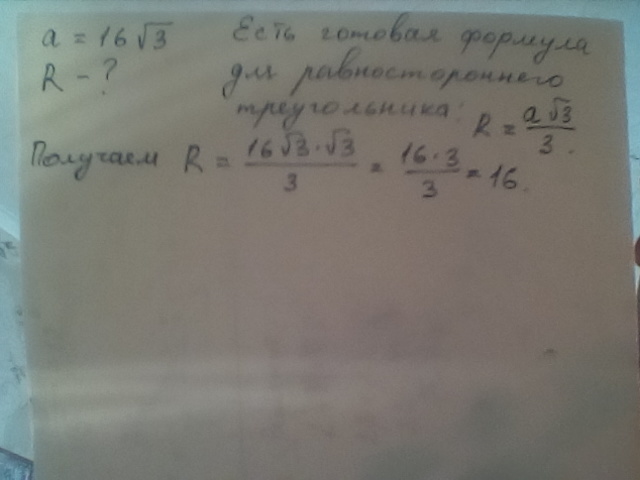 a = 16√3 Есть готовая формула
R - ? для равностороннего
треугольника: R = a√3/3.
Получаем R = 16√3·√3/3 = 16·3/3 = 16.